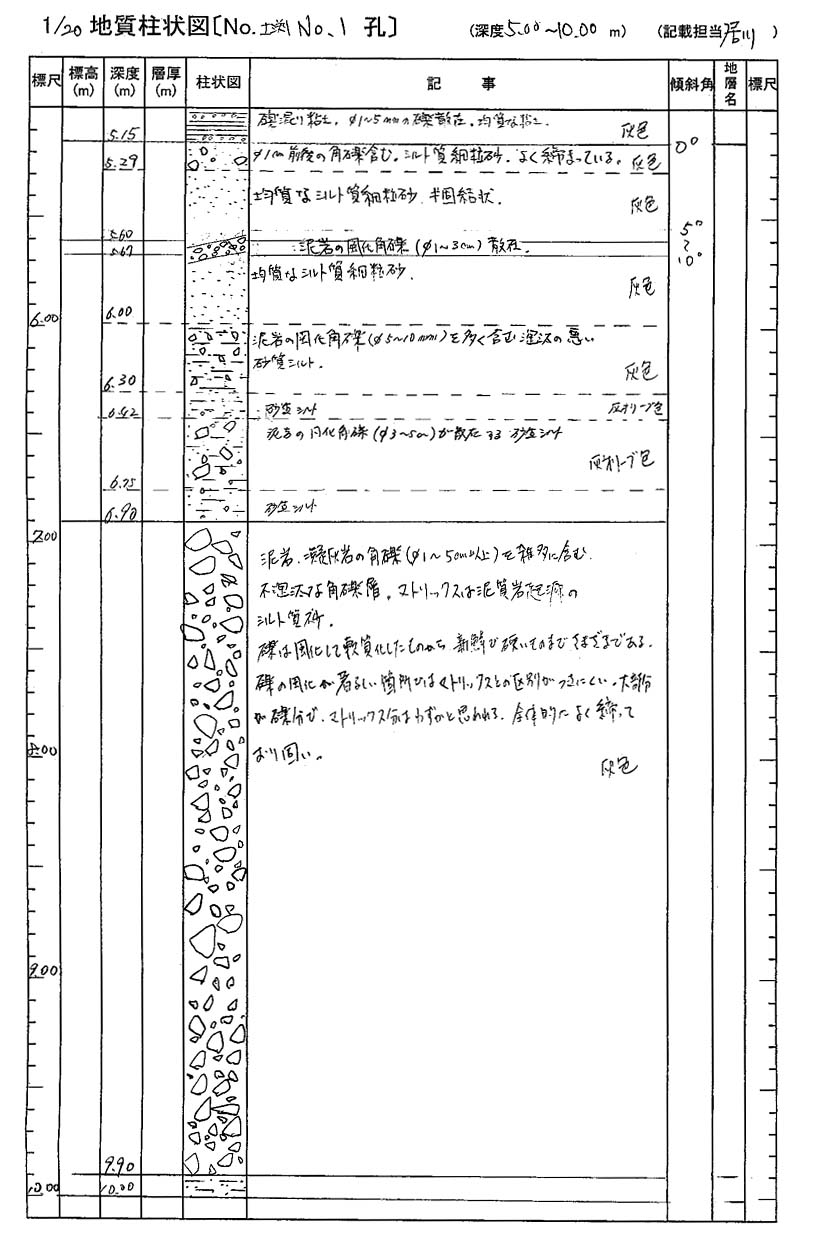 1/20 地質柱状図〔No. No.1 孔〕 (深度5.00~10.00 m) (記載担当 )
標尺 標高(m) 深度(m) 層厚(m) 柱状図 記事 傾斜角 地層名 標尺
礫混り粘土。φ1~5mmの礫散在。均質な粘土。
灰色
5.15
0°
φ1cm前後の角礫含む。シルト質細粒砂。よく締まっている。灰色
5.29
均質なシルト質細粒砂、半固結状。
灰色
5.60
5°
泥岩の風化角礫(φ1~3cm)散在。
5.67
~
10°
均質なシルト質細粒砂。
灰色
6.00
6.00
泥岩の風化角礫(φ5~10mm)を多く含む淘汰の悪い
砂質シルト。
灰色
6.30
砂質シルト 灰オリーブ色
6.42
泥岩の風化角礫(φ3~5cm)が散在する 砂質シルト
灰オリーブ色
6.75
砂質シルト
6.90
7.00
泥岩、凝灰岩の角礫(φ1~5cm以上)を雑多に含む
不淘汰な角礫層。マトリックスは泥質岩起源の
シルト質砂。
礫は風化して軟質化したものから新鮮で硬いものまでさまざまである。
礫の風化が著るしい箇所ではマトリックスとの区別がつきにくい。大部分
が礫分で、マトリックス分はわずかと思われる。全体的によく締って
おり固い。
8.00
灰色
9.00
9.90
10.00
10.00